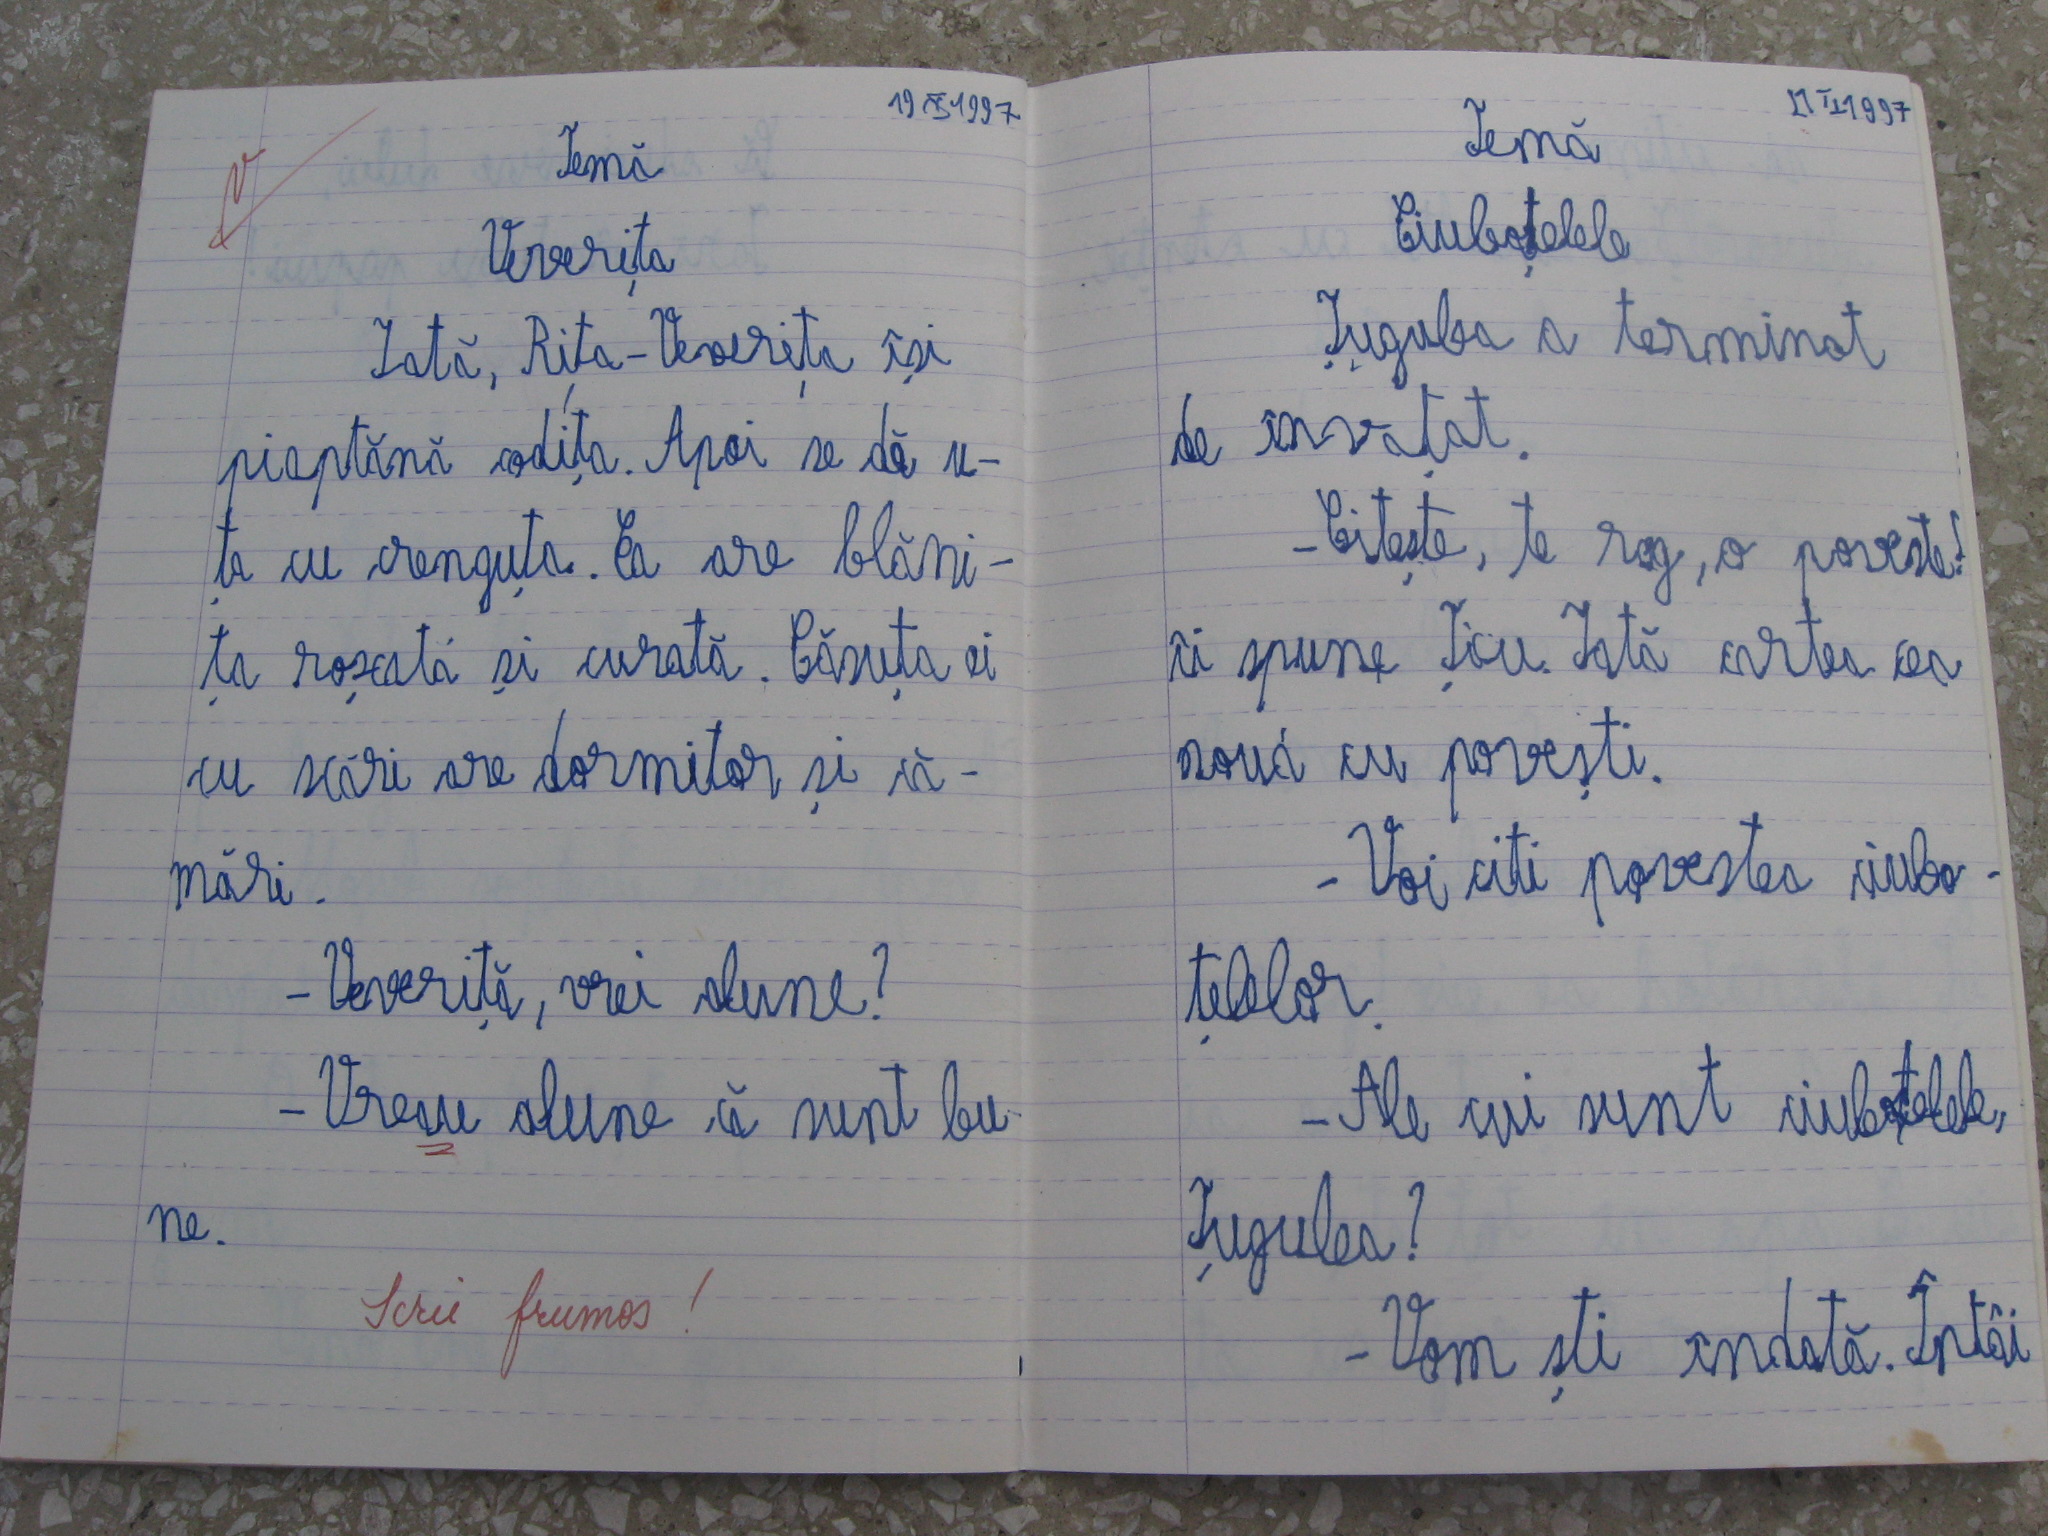 19 IX 1997
Temă
Veverița
Iată, Rița-Veverița își
pieptănă codița. Apoi se dă u-
ța cu crenguța. Ea are blăni-
ța roșcată și curată. Căsuța ei
cu scări are dormitor și că-
mări.
-Veveriță, vrei alune?
-Vreau alune că sunt bu
ne.
Scrii frumos!
1997
Temă
Ciuboțelele
Țugulea a terminat
de învățat.
-Citește, te rog, o poveste!
îi spune Țicu. Iată cartea cea
nouă cu povești.
-Voi citi povestea ciubo-
țelelor.
-Ale cui sunt ciuboțelele,
Țugulea?
-Vom ști îndată. Întâi